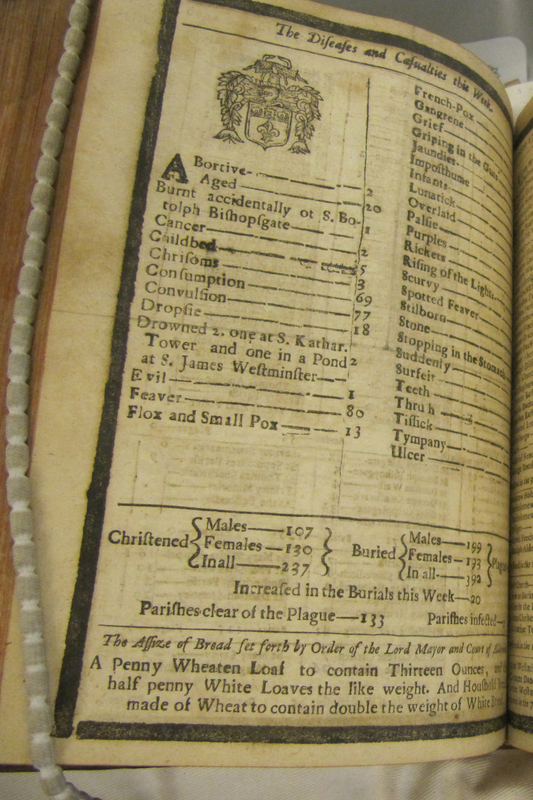 The Diſeaſes and Caſualties this Week.
ABortive 2
Aged 20
Burnt accidentally ot S. Bo-
tolph Biſhopſgate 1
Cancer 2
Childbed 5
Chriſoms 3
Conſumption 69
Convulſion 77
Dropſie 18
Drowned 2. one at S. Kathar.
Tower and one in a Pond 2
at S. James Weſtminſter
Evil 1
Feaver 80
Flox and Small Pox 13
French-Pox
Gangrene
Grief
Griping in the Guts
Jaundies
Impoſthume
Infants
Lunatick
Overlaid
Palſie
Purples
Rickets
Riſing of the Lights
Scurvy
Spotted Feaver
Stilborn
Stone
Stopping in the Stomach
Suddenly
Surfeit
Teeth
Thruſh
Tiſſick
Tympany
Ulcer
Chriſtened { Males 107 Females 130 In all 237 }
Buried { Males 199 Females 193 In all 392 }
Increaſed in the Burials this Week 20
Pariſhes clear of the Plague 133 Pariſhes infected
The Aſſize of Bread ſet forth by Order of the Lord Mayor and Court of
A Penny Wheaten Loaf to contain Thirteen Ounces, and
half penny White Loaves the like weight. And Houſhold
made of Wheat to contain double the weight of White